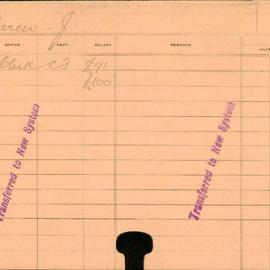 J.
OFFICE DEPT. SALARY REMARKS
Clerk C3 £91
£100
Transferred to New System
Transferred to New System